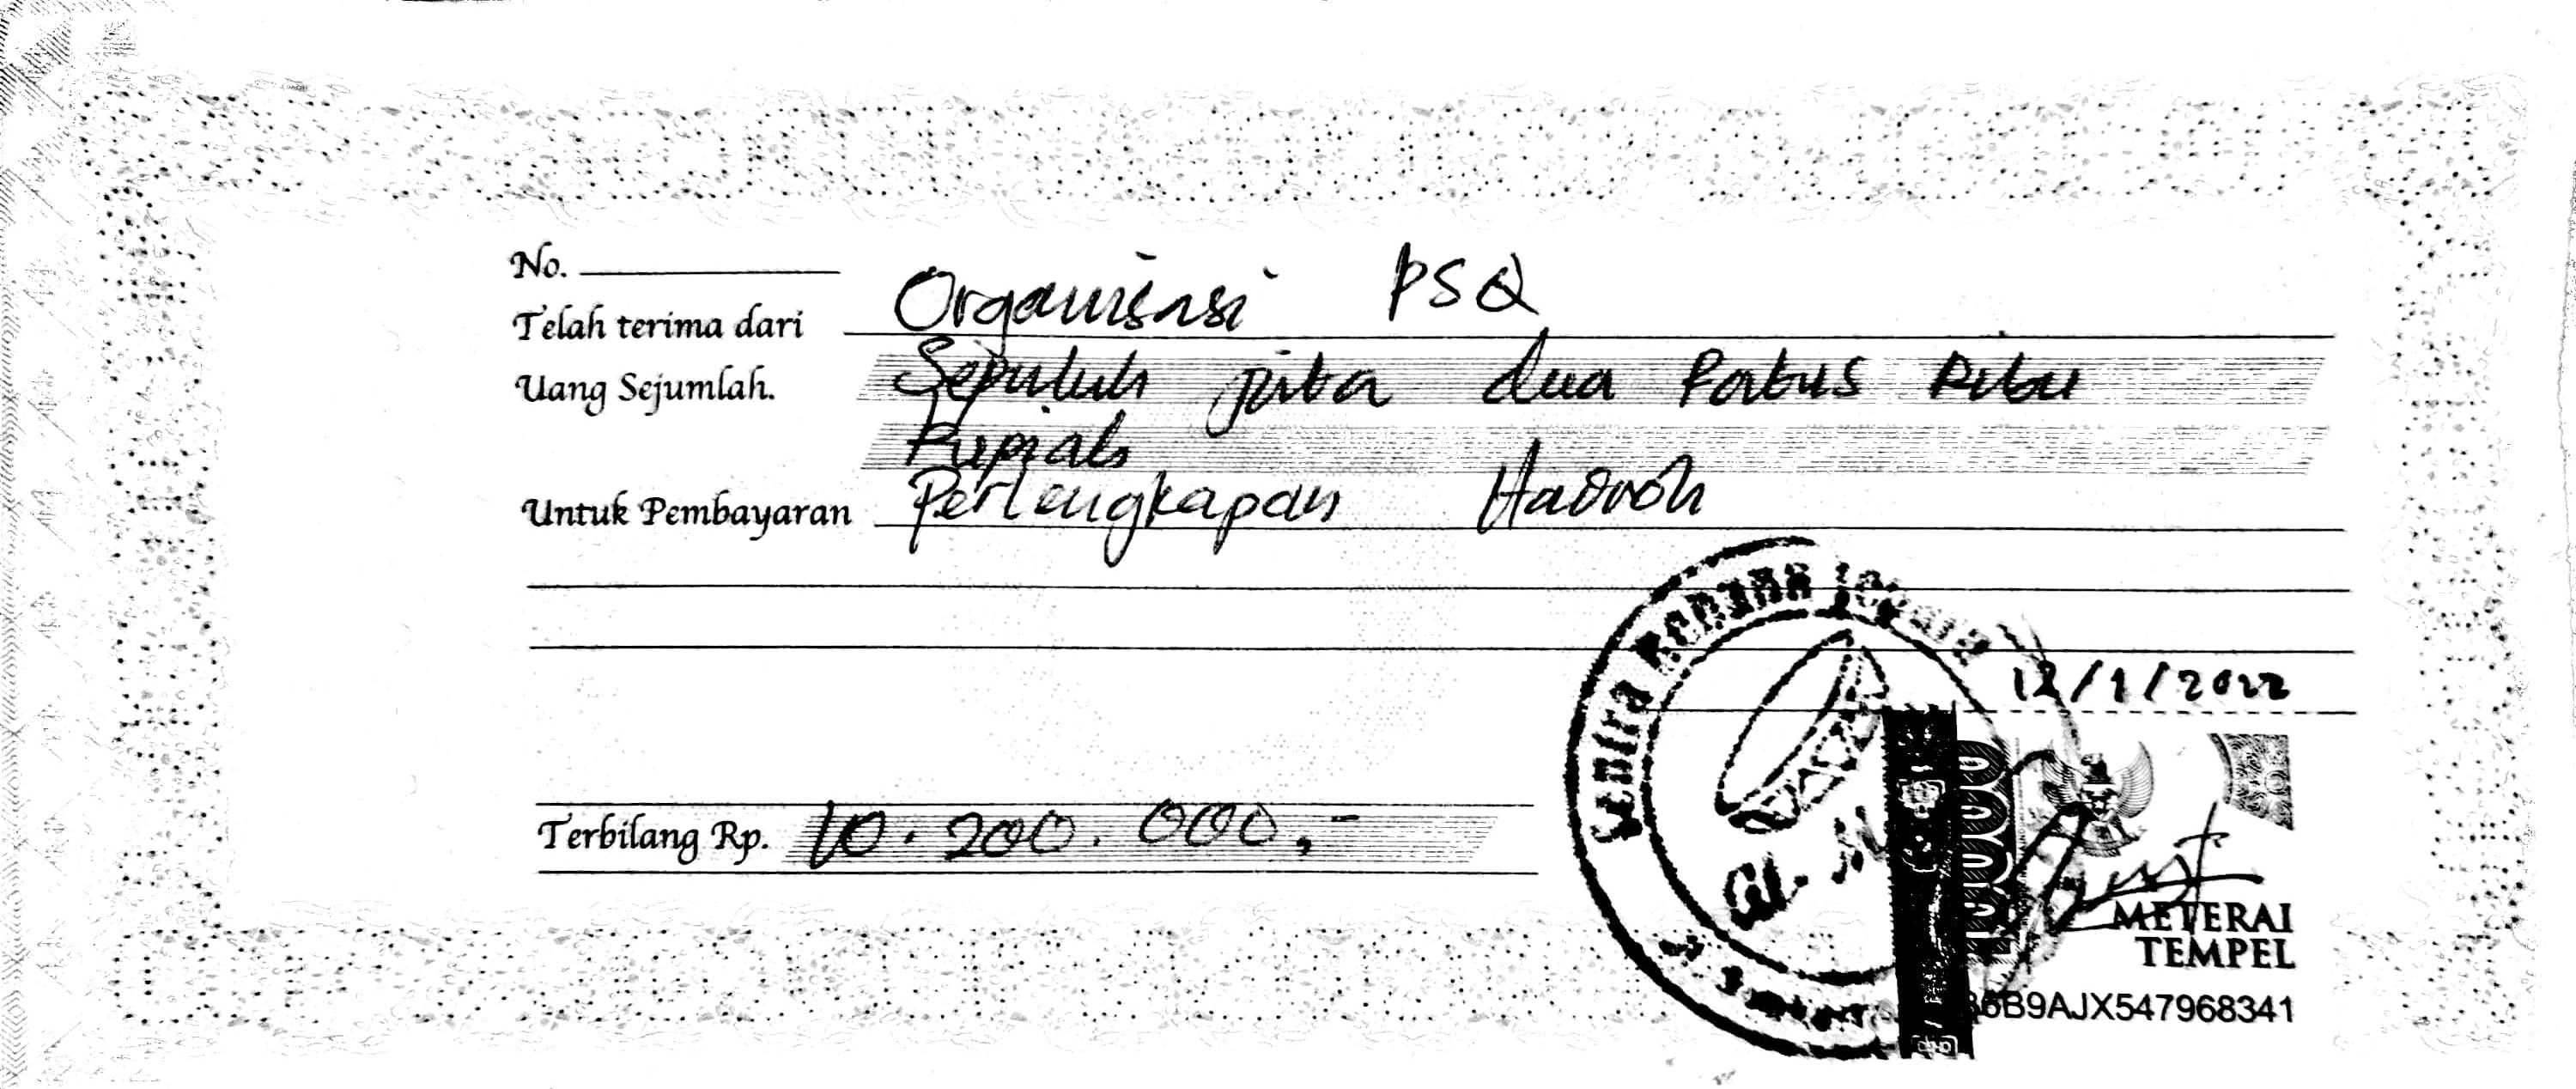 No.
Telah terima dari Organisasi PSQ
Uang Sejumlah. Sepuluh juta dua Ratus Ribu
Rupiah
Untuk Pembayaran Perlengkapan Hadroh
12/1/2022
Terbilang Rp. 10.200.000,-
Sentra Rebana Jepara
10000
METERAI
TEMPEL
B9AJX547968341